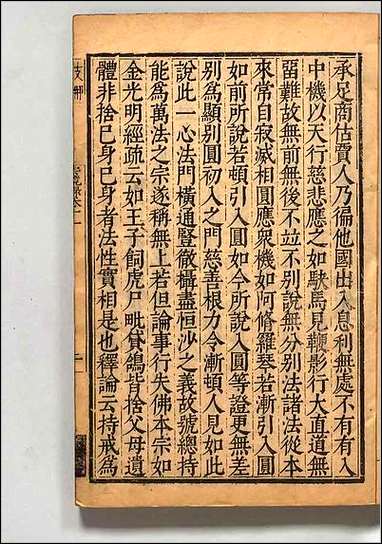 承足商估賈人乃徧他國出入息利無處不有有入
中機以天行慈悲應之如駃馬見鞭影行大直道無
畱難故無前無後不竝不別說無分別法諸法從本
來常自寂滅相圓應衆機如阿脩羅琴若漸引入圓
如前所說若頓引入圓如今所說入圓等證更無差
別爲顯別圓初入之門慈善根力令漸頓人見如此
說此一心法門橫通豎徹攝盡恒沙之義故號總持
能爲萬法之宗遂稱無上若但論事行失佛本宗如
金光明經疏云如王子飼虎尸毗貸鴿皆捨父母遺
體非捨已身已身者法性實相是也釋論云持戒爲